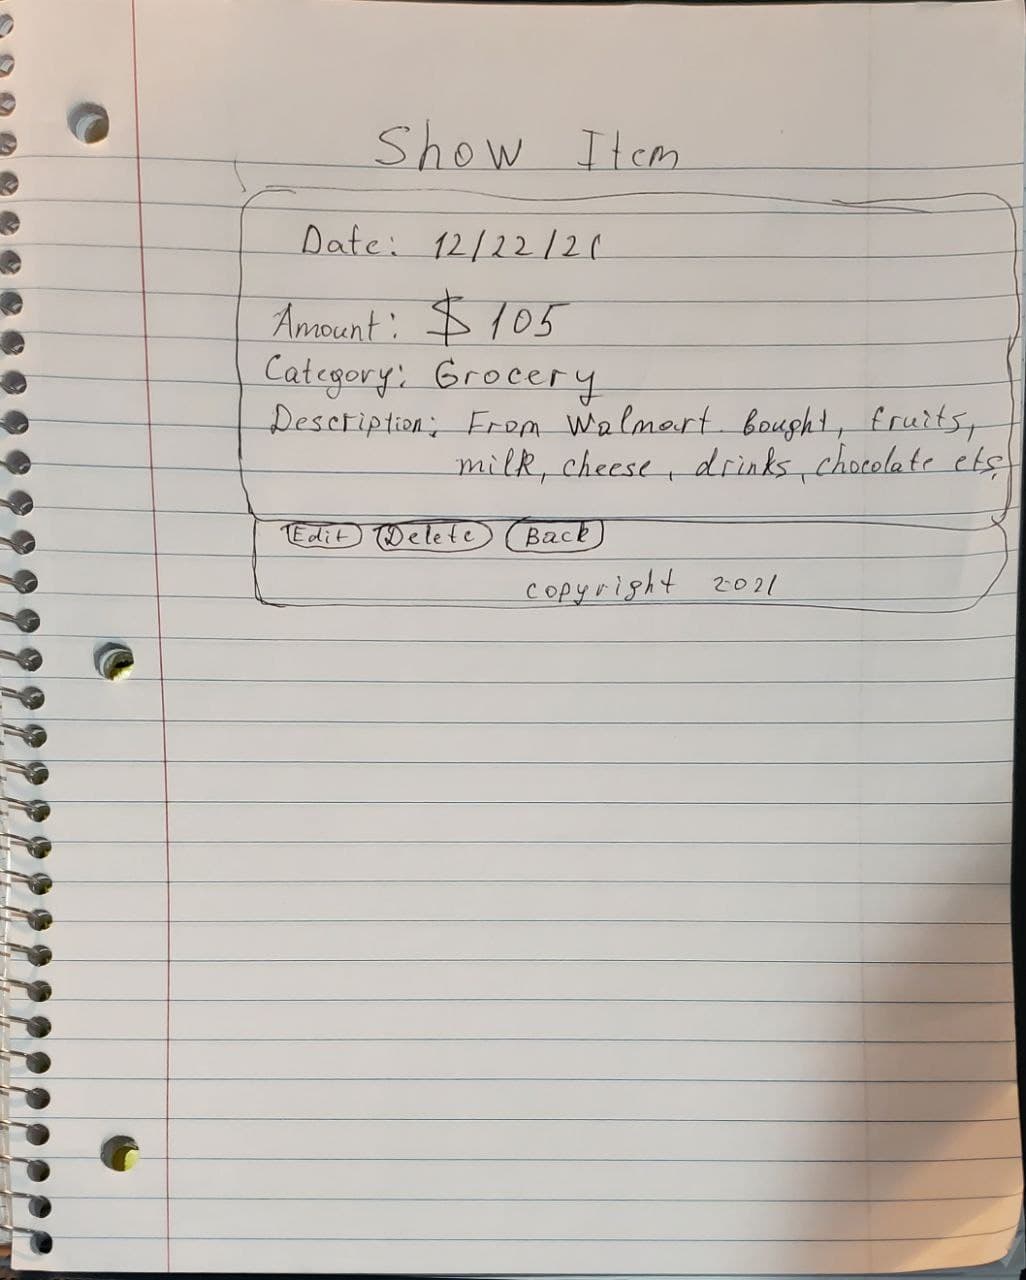 Show Item
Date: 12/22/21
Amount: $ 105
Category: Grocery
Description: From Walmart. Bought, fruits,
milk, cheese, drinks, chocolate ets.
Edit Delete Back
copyright 2021